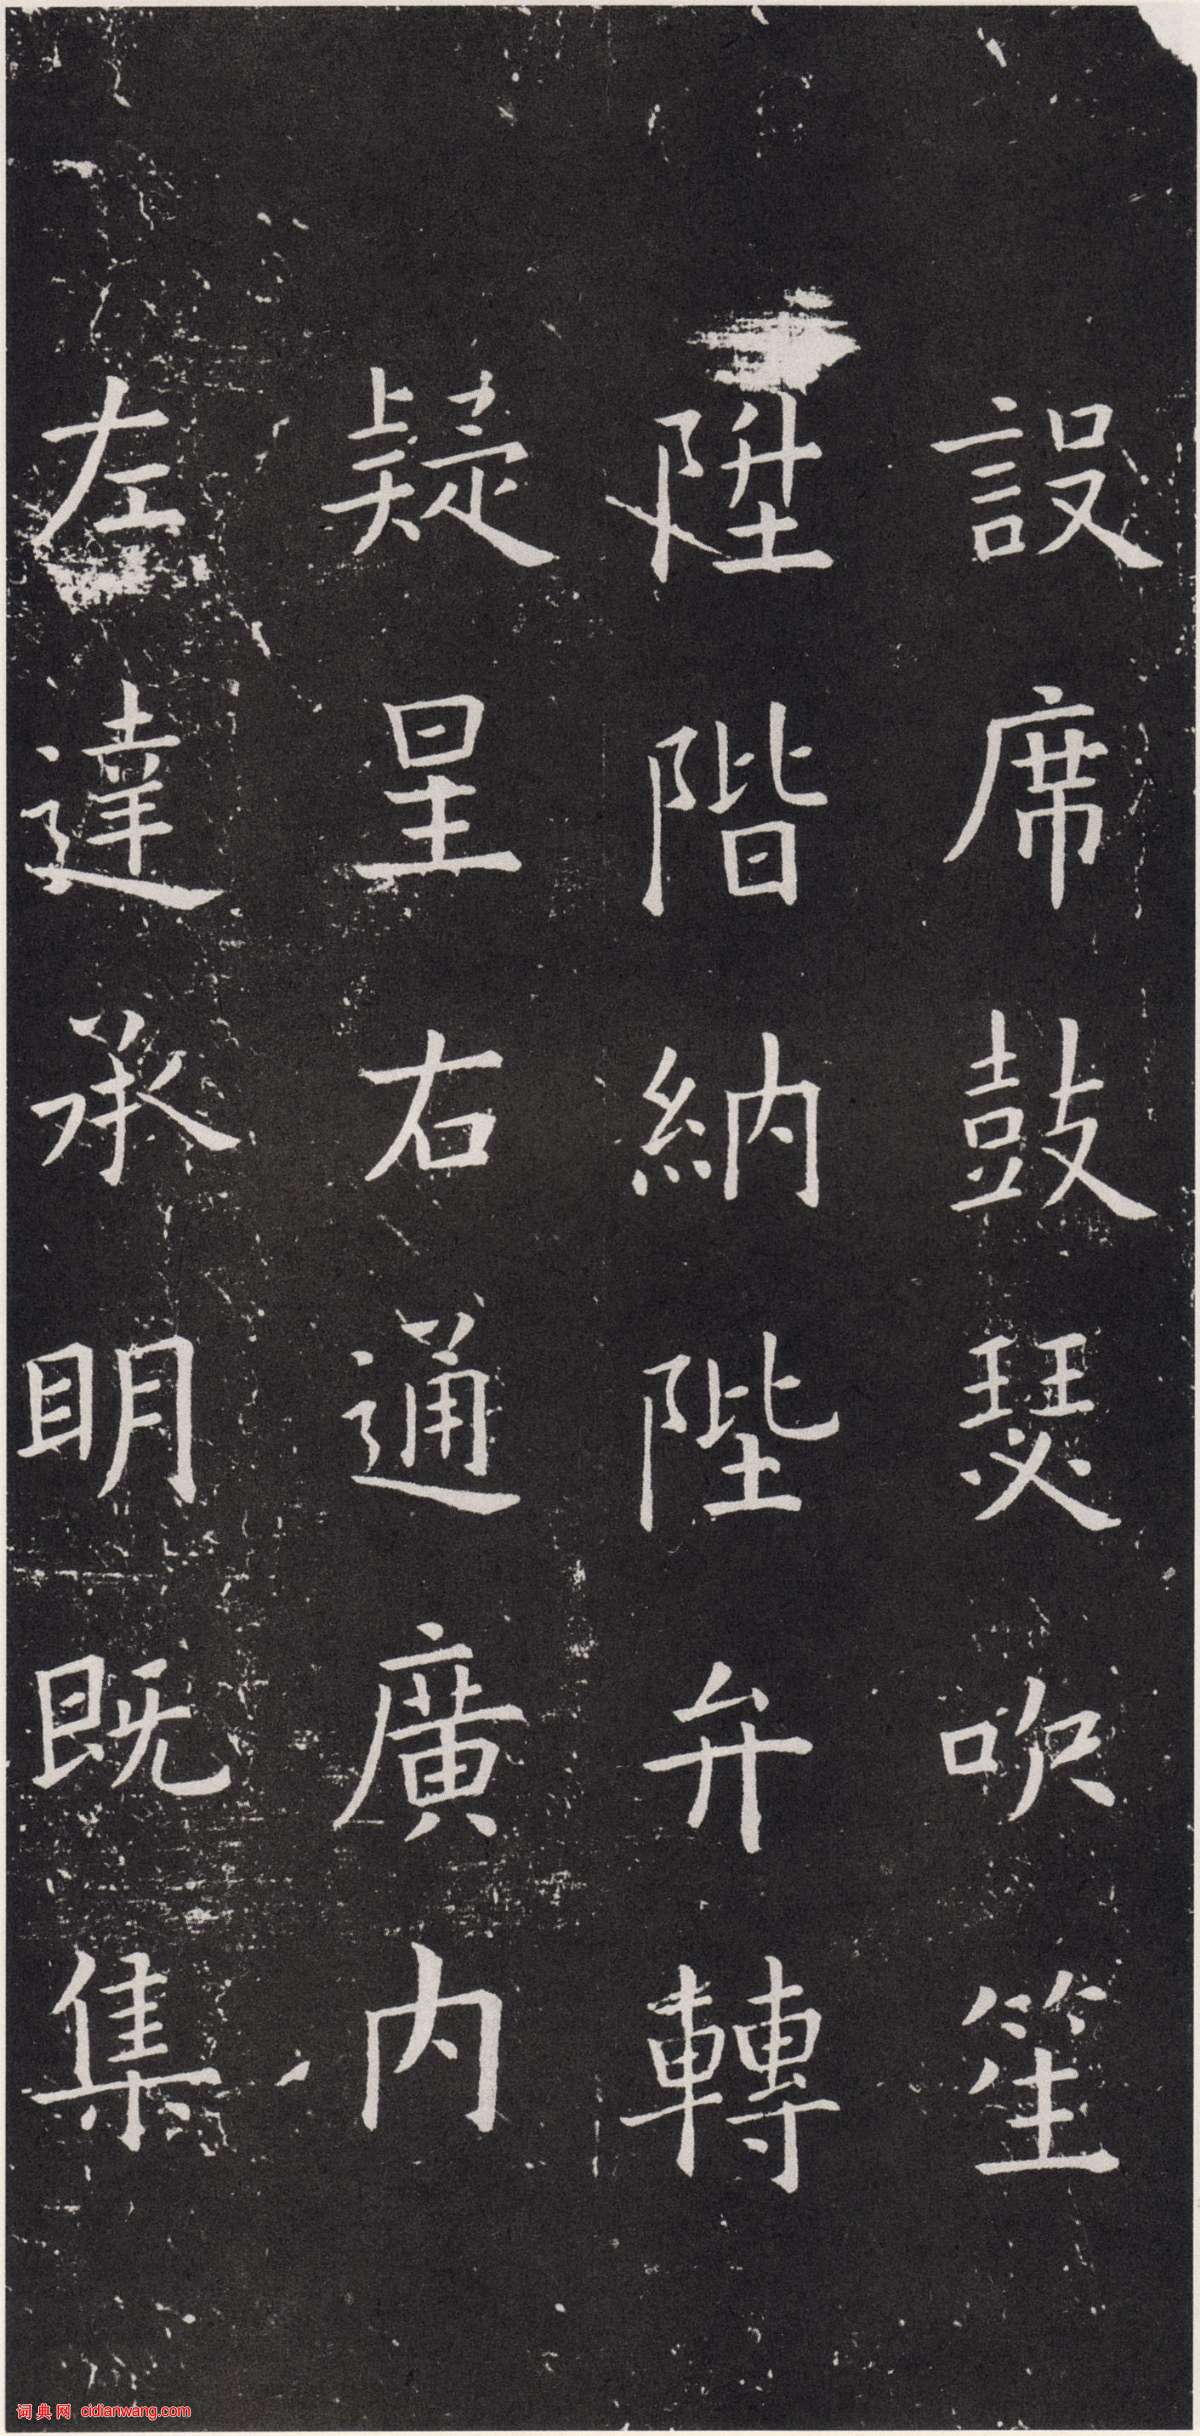 設席鼓瑟吹笙
陞階納陛弁轉
疑星右通廣内
左達承明既集
词典网 cidianwang.com